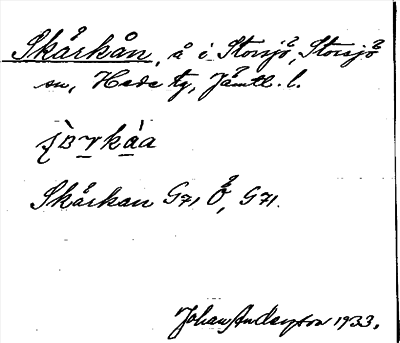 Skårkån, å i Storsjö, Storsjö
sn, Hede tg, Jämtl. l.
Skårkan G71 Ö, G71.
Johan Anderson 1933.